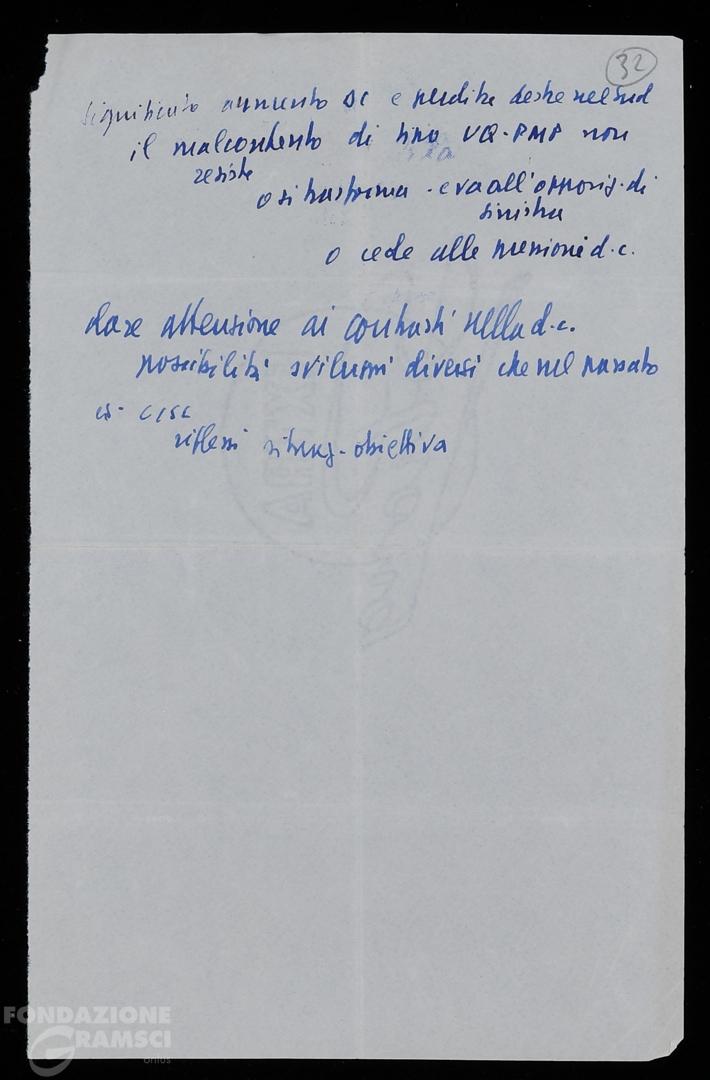 32
significato aumento DC e perdita destre nel sud
il malcontento di tipo UQ-PMP non
resiste
o si trasforma - e va all'opposiz. di
sinistra
o cede alle pressioni d.c.
dare attenzione ai contrasti nella d.c.
possibilità sviluppi diversi che nel passato
es. CISL
riflessi situaz. obiettiva
FONDAZIONE
GRAMSCI
onlus